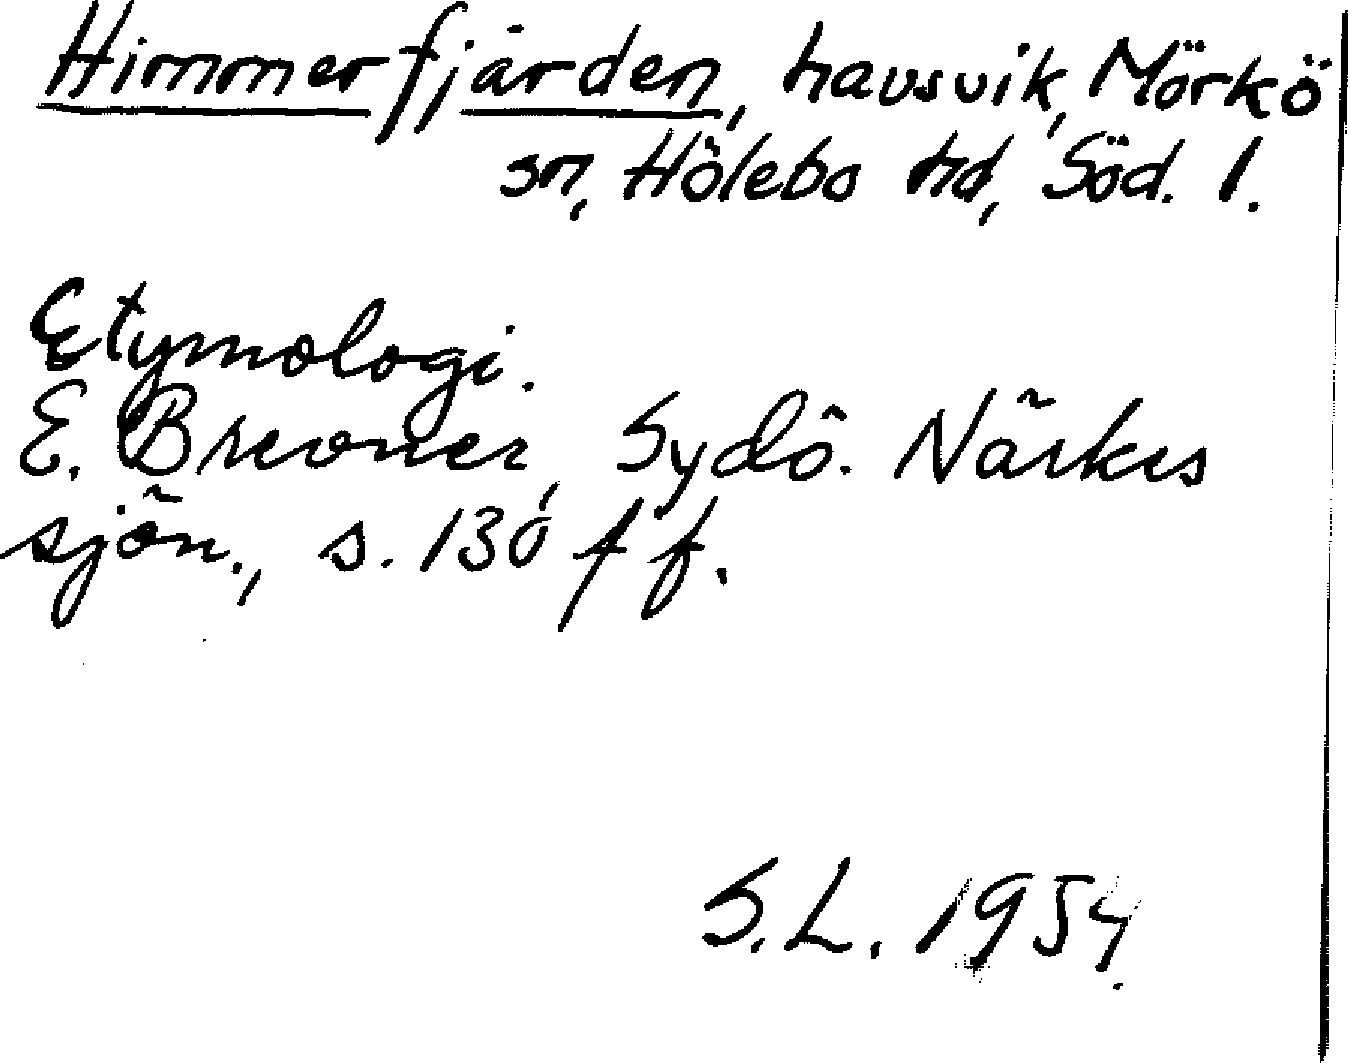 Himmerfjärden, havsvik, Mörkö
sn, Hölebo hd, Söd. l.
Etymologi.
E. Brevner, Sydö. Närkes
sjön., s. 130 ff.
S.L. 1954.